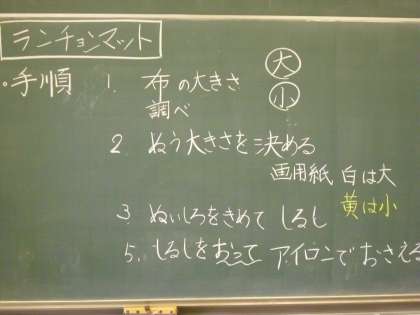 ランチョンマット
・手順 1. 布の大きさ 大
調べ 小
2. ぬう大きさを決める
画用紙 白は大
黄は小
3. ぬいしろをきめて しるし
5. しるしをおって アイロンでおさえる